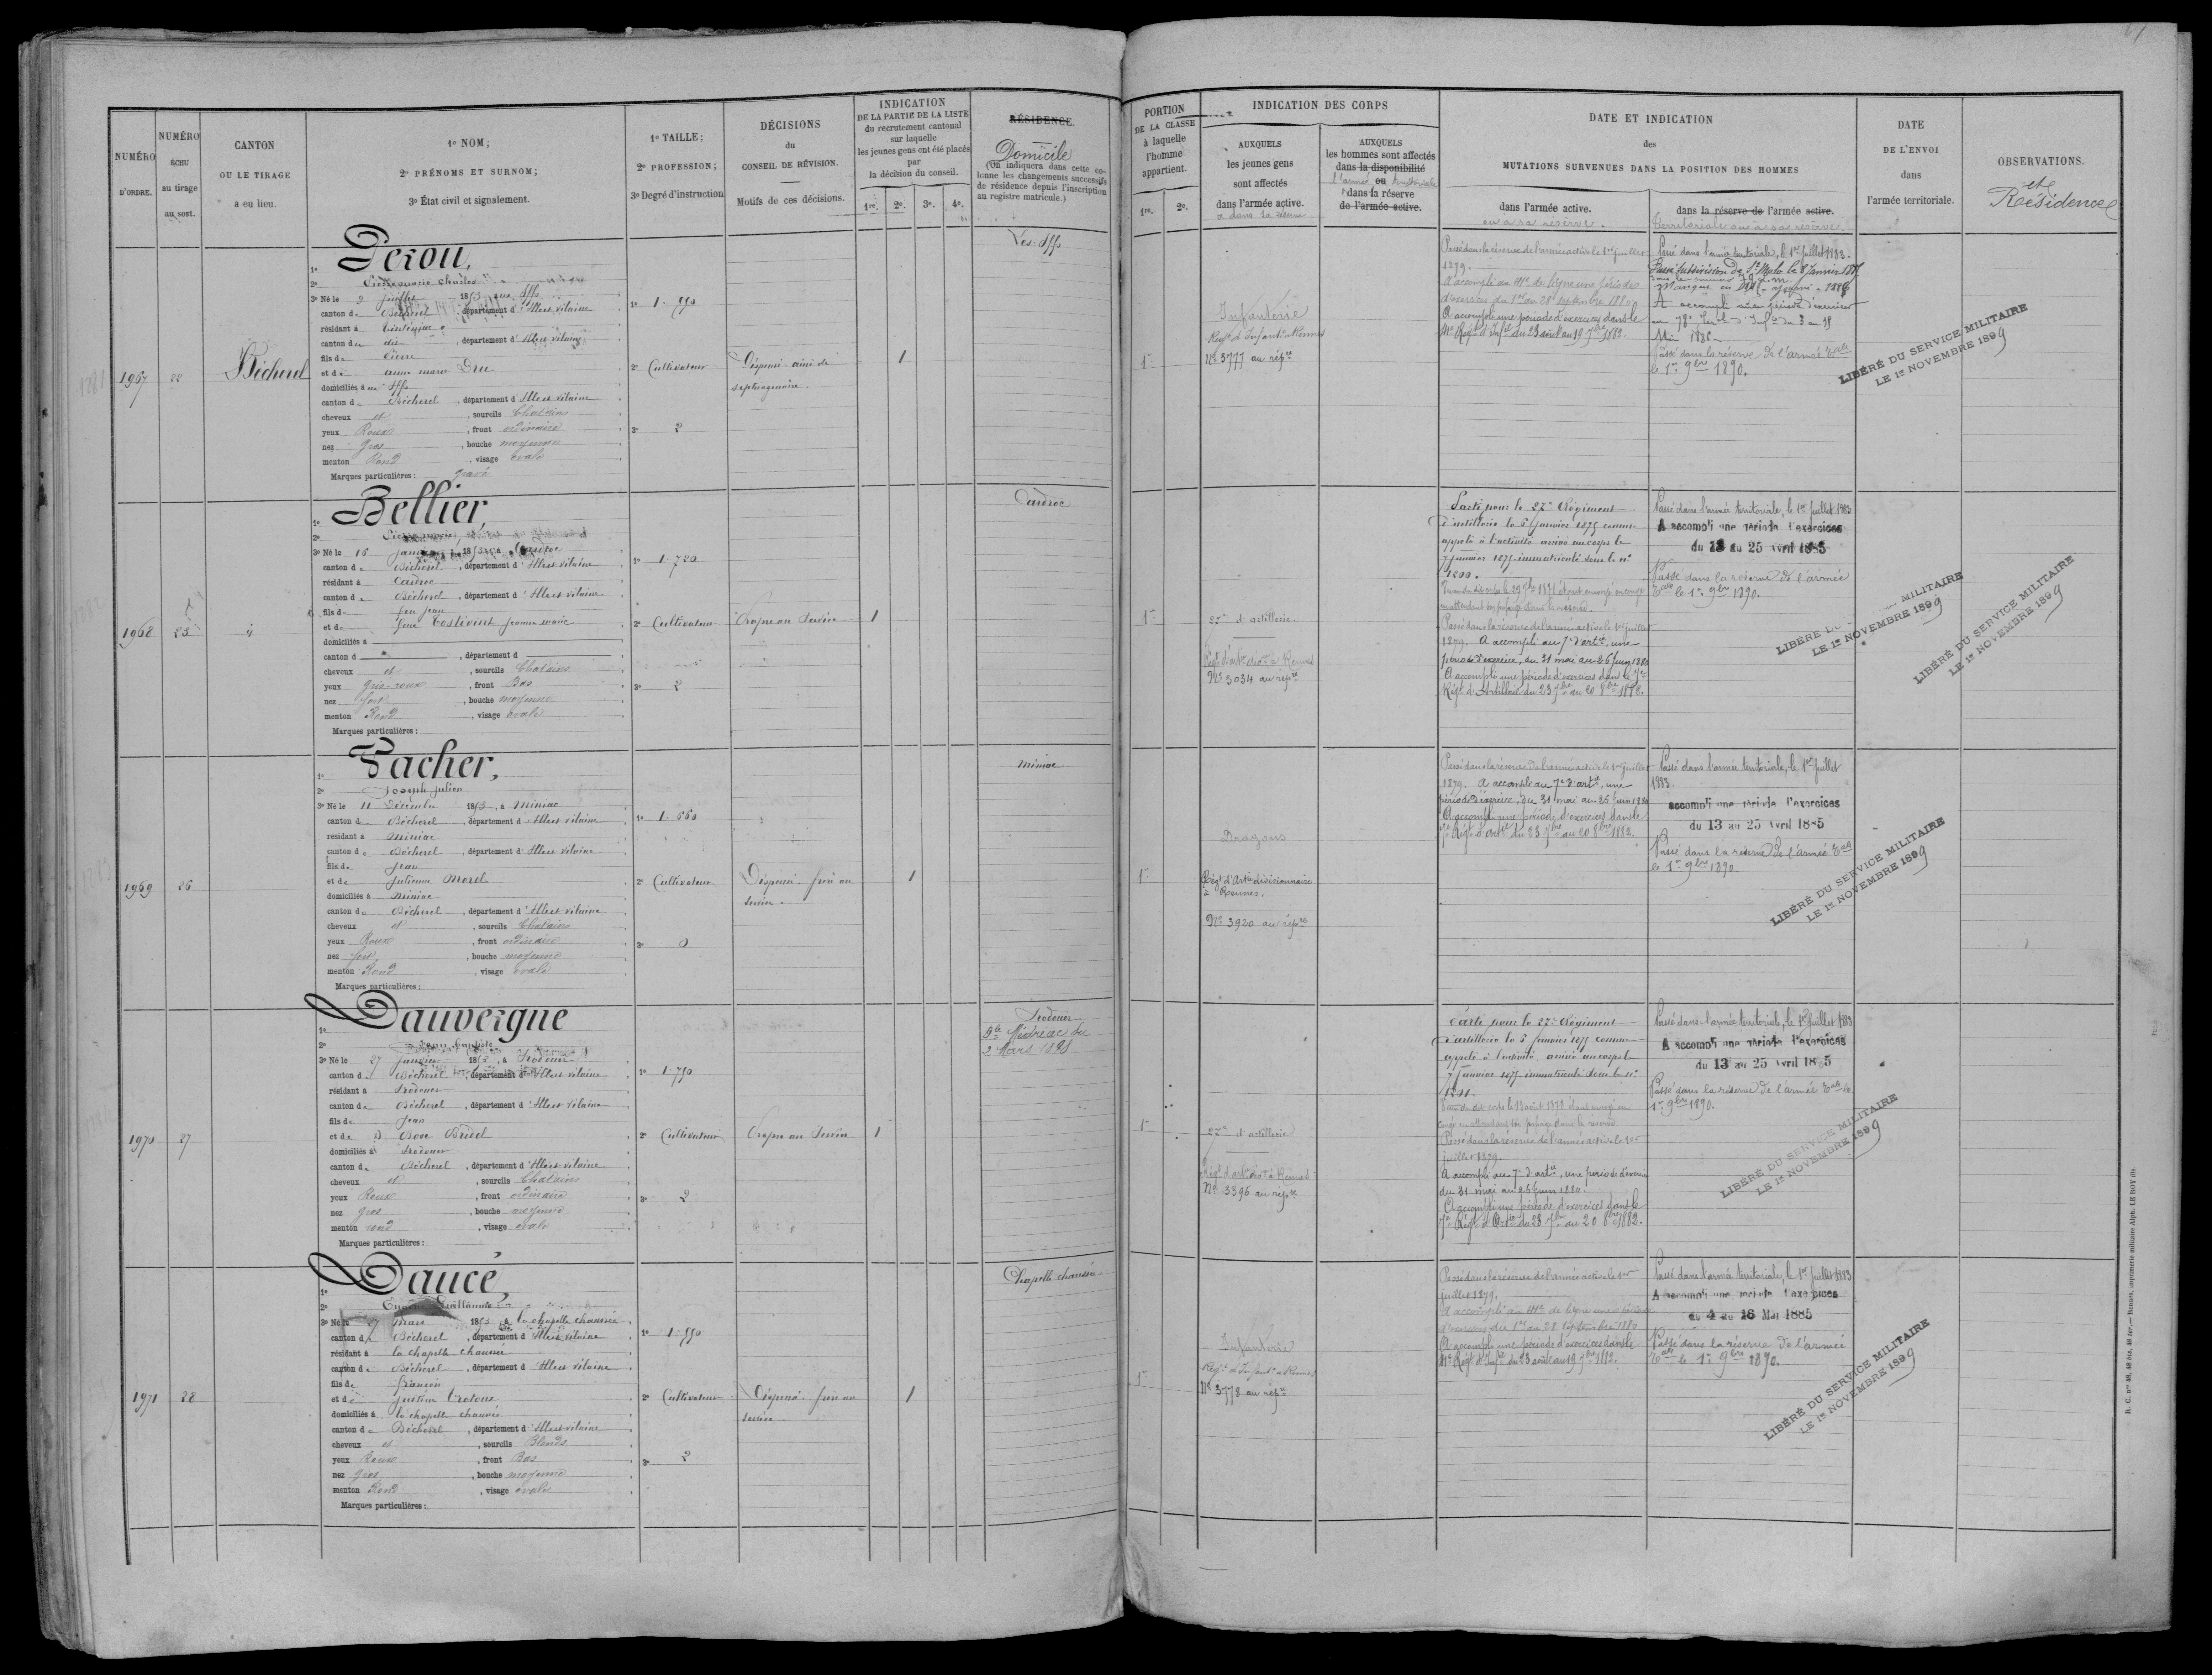 NUMÉRO
D'ORDRE.
NUMÉRO
ÉCHU
au tirage
au sort.
CANTON
OU LE TIRAGE
a eu lieu.
1º NOM;
2º PRÉNOMS ET SURNOM;
3º État civil et signalement.
1º TAILLE;
2º PROFESSION;
3º Degré d'instruction
DÉCISIONS
du
CONSEIL DE RÉVISION.
Motifs de ces décisions.
INDICATION
DE LA PARTIE DE LA LISTE
du recrutement cantonal
sur laquelle
les jeunes gens ont été placés
par
la décision du conseil.
1re. 2e. 3e. 4e.
RÉSIDENCE.
Domicile
(On indiquera dans cette co-
lonne les changements successifs
de résidence depuis l'inscription
au registre matricule.)
PORTION
DE LA CLASSE
à laquelle
l'homme
appartient.
1re. 2e.
INDICATION DES CORPS
AUXQUELS
les jeunes gens
sont affectés
dans l'armée active.
& dans la réserve
AUXQUELS
les hommes sont affectés
dans la disponibilité
ou
l'armée territoriale
dans la réserve
de l'armée active.
DATE ET INDICATION
des
MUTATIONS SURVENUES DANS LA POSITION DES HOMMES
dans l'armée active.
ou a sa réserve.
dans la réserve de l'armée active.
territoriale ou a sa réserve
DATE
DE L'ENVOI
dans
l'armée territoriale.
OBSERVATIONS.
et
Résidence
1967
22
Bécherel
1º Perou,
2º Pierre marie Charles
3º Né le 9 juillet 1853, a
canton de Bécherel, département d'Illes vilaine
résidant à Tinténiac
canton de dit, département d'Illes vilaine
fils de Pierre
et de anne marie Dru
domiciliés à
canton de Bécherel, département d'Illes vilaine
cheveux et, sourcils Chatains
yeux Roux, front ordinaire
nez Gros, bouche moyenne
menton Rond, visage ovale
Marques particulières : gravé
1º 1.590
2º Cultivateur
3º 2
Dispensé. ainé de
septuagénaire.
1
Les Iffs
1re
Infanterie
Regt d'Infant. à Rennes
Nº 3777 au répre
Passé dans la réserve de l'armée active le 1er juillet
1879.
A accompli au 41e de ligne une période
d'exercices du 1er au 28 septembre 1880
A accompli une période d'exercices dans le
41e Régt d'Infie du 23 août au 19 7bre 1882.
Passé dans l'armée territoriale, le 1er juillet 1883.
Passé subdivision de St Malo le 8 Janvier 1885
A accompli une période d'exercices
au 78e Terr. d'Infie du 3 au 15
Mai 1886
Passé dans la réserve de l'armée Tale
le 1er 9bre 1890.
LIBÉRÉ DU SERVICE MILITAIRE
LE 1er NOVEMBRE 1899
1968
25
1º Bellier,
2º Pierre marie
3º Né le 16 janvier 1853, a Cardroc
canton de Bécherel, département d'Illes vilaine
résidant à Cardroc
canton de Bécherel, département d'Illes vilaine
fils de feu Jean
et de feue Costivint Jeanne marie
domiciliés à
canton d , département d
cheveux et, sourcils Chatains
yeux gris-roux, front Bas
nez fort, bouche moyenne
menton Rond, visage ovale
Marques particulières :
1º 1.720
2º Cultivateur
3º 2
Propre au Service
1
Cardroc
1re
27e d'artillerie.
Régt d'artie dire à Rennes
Nº 3034 au répre
Parti pour le 27e Régiment
d'artillerie le 6 Janvier 1875 comme
appelé à l'activité arrivé au corps le
7 janvier 1875. immatriculé sous le nº
1200.
en attendant son passage dans la réserve.
Passé dans la réserve de l'armée active le 1er juillet
1879. A accompli au 7e d'artie, une
période d'exercice, du 31 mai au 26 juin 1880
A accompli une période d'exercices dans le 7e
Régt d'Artillerie du 23 7bre au 20 8bre 1882.
Passé dans l'armée territoriale, le 1er juillet 1883
A accompli une période d'exercices
du 13 au 25 Avril 1885
Passé dans la réserve de l'armée
Tale le 1er 9bre 1890.
LIBÉRÉ DU MILITAIRE
LE 1er NOVEMBRE 1899
LIBÉRÉ DU SERVICE MILITAIRE
LE 1er NOVEMBRE 1899
1969
26
1º Vacher,
2º Joseph Julien
3º Né le 11 Décembre 1853, a Miniac
canton de Bécherel, département d'Illes vilaine
résidant à Miniac
canton de Bécherel, département d'Illes vilaine
fils de Jean
et de Julienne Morel
domiciliés à Miniac
canton de Bécherel, département d'Illes vilaine
cheveux et, sourcils Chatains
yeux Roux, front ordinaire
nez fort, bouche moyenne
menton Rond, visage ovale
Marques particulières :
1º 1.660
2º Cultivateur
3º 0
Dispensé. frère au
service.
1
Miniac
1re
Dragons
Régt d'Artie divisionnaire
à Rennes.
Nº 3920 au répre
Passé dans la réserve de l'armée active le 1er juillet
1879. A accompli au 7e d'artie, une
période d'exercice, du 31 mai au 26 juin 1880
A accompli une période d'exercices dans le
7e Régt d'artie du 23 7bre au 20 8bre 1882.
Passé dans l'armée territoriale, le 1er juillet
1883
accompli une période d'exercices
du 13 au 25 Avril 1885
Passé dans la réserve de l'armée Tale
le 1er 9bre 1890.
LIBÉRÉ DU SERVICE MILITAIRE
LE 1er NOVEMBRE 1899
1970
27
1º Dauvergne
2º Jean Baptiste
3º Né le 27 janvier 1853, a Irodouer
canton de Bécherel, département d'Illes vilaine
résidant à Irodouer
canton de Bécherel, département d'Illes vilaine
fils de Jean
et de Rose Bridel
domiciliés à Irodouer
canton de Bécherel, département d'Illes vilaine
cheveux et, sourcils Chatains
yeux Roux, front ordinaire
nez gros, bouche moyenne
menton rond, visage ovale
Marques particulières :
1º 1.750
2º Cultivateur
3º 2
Propre au Service
1
Irodouer
Médréac du
2 Mars 1898
1re
27e d'artillerie
Régt d'artie dire à Rennes
Nº 3396 au répre
Parti pour le 27e Régiment
d'artillerie le 6 Janvier 1875 comme
appelé à l'activité arrivé au corps le
7 janvier 1875. immatriculé sous le nº
1201.
Passé dans la réserve de l'armée active le 1er
juillet 1879.
A accompli au 7e d'artie, une période d'exercice
du 31 mai au 26 juin 1880.
A accompli une période d'exercices dans le
7e Régt d'Artie du 23 7bre au 20 8bre 1882.
Passé dans l'armée territoriale, le 1er juillet 1883
A accompli une période d'exercices
du 13 au 25 Avril 1885
Passé dans la réserve de l'armée Tale le
1er 9bre 1890.
LIBÉRÉ DU SERVICE MILITAIRE
LE 1er NOVEMBRE 1899
1971
28
1º Daucé,
2º Guillaume
3º Né le 27 mars 1853, a la chapelle chaussée
canton de Bécherel, département d'Illes vilaine
résidant à la chapelle chaussée
canton de Bécherel, département d'Illes vilaine
fils de François
et de Justine Trotoux
domiciliés à la chapelle chaussée
canton de Bécherel, département d'Illes vilaine
cheveux et, sourcils Blonds
yeux Roux, front Bas
nez gros, bouche moyenne
menton Rond, visage ovale
Marques particulières :
1º 1.590
2º Cultivateur
3º 2
Dispensé. frère au
service.
1
Chapelle chaussée
1re
Infanterie
Régt d'Infant. à Rennes
Nº 3778 au répre
Passé dans la réserve de l'armée active le 1er
juillet 1879.
A accompli au 41e de ligne une période
d'exercices du 1er au 28 septembre 1880
A accompli une période d'exercices dans le
41e Régt d'Infie du 23 août au 19 7bre 1882.
Passé dans l'armée territoriale, le 1er juillet 1883
A accompli une période d'exercices
du 4 au 16 Mai 1885
Passé dans la réserve de l'armée
Tale le 1er 9bre 1890.
LIBÉRÉ DU SERVICE MILITAIRE
LE 1er NOVEMBRE 1899